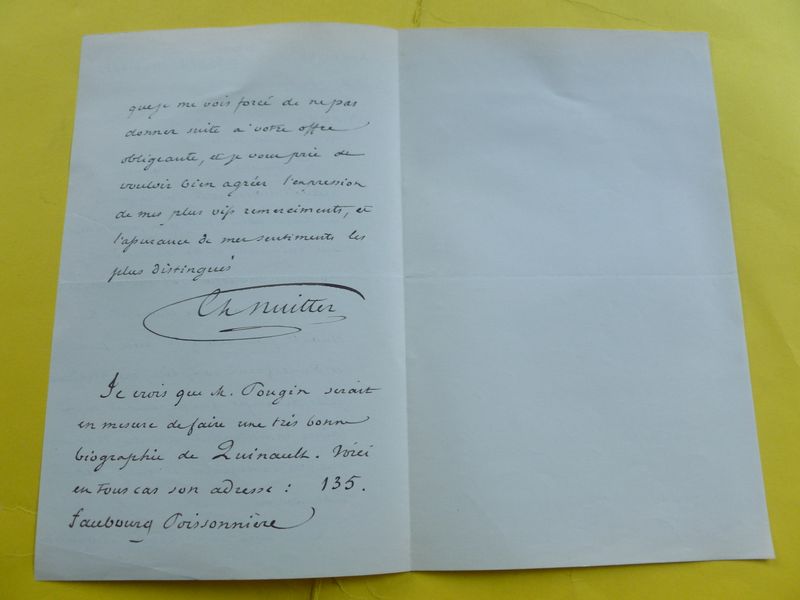 que je me vois forcé de ne pas
donner suite à votre offre
obligeante, et je vous prie de
vouloir bien agréer l'expression
de mes plus vifs remerciments, et
l'assurance de mes sentiments les
plus distingués
Ch Nuitter
Je crois que M. Pougin serait
en mesure de faire une très bonne
biographie de Quinault. Voici
en tous cas son adresse : 135.
faubourg Poissonnière